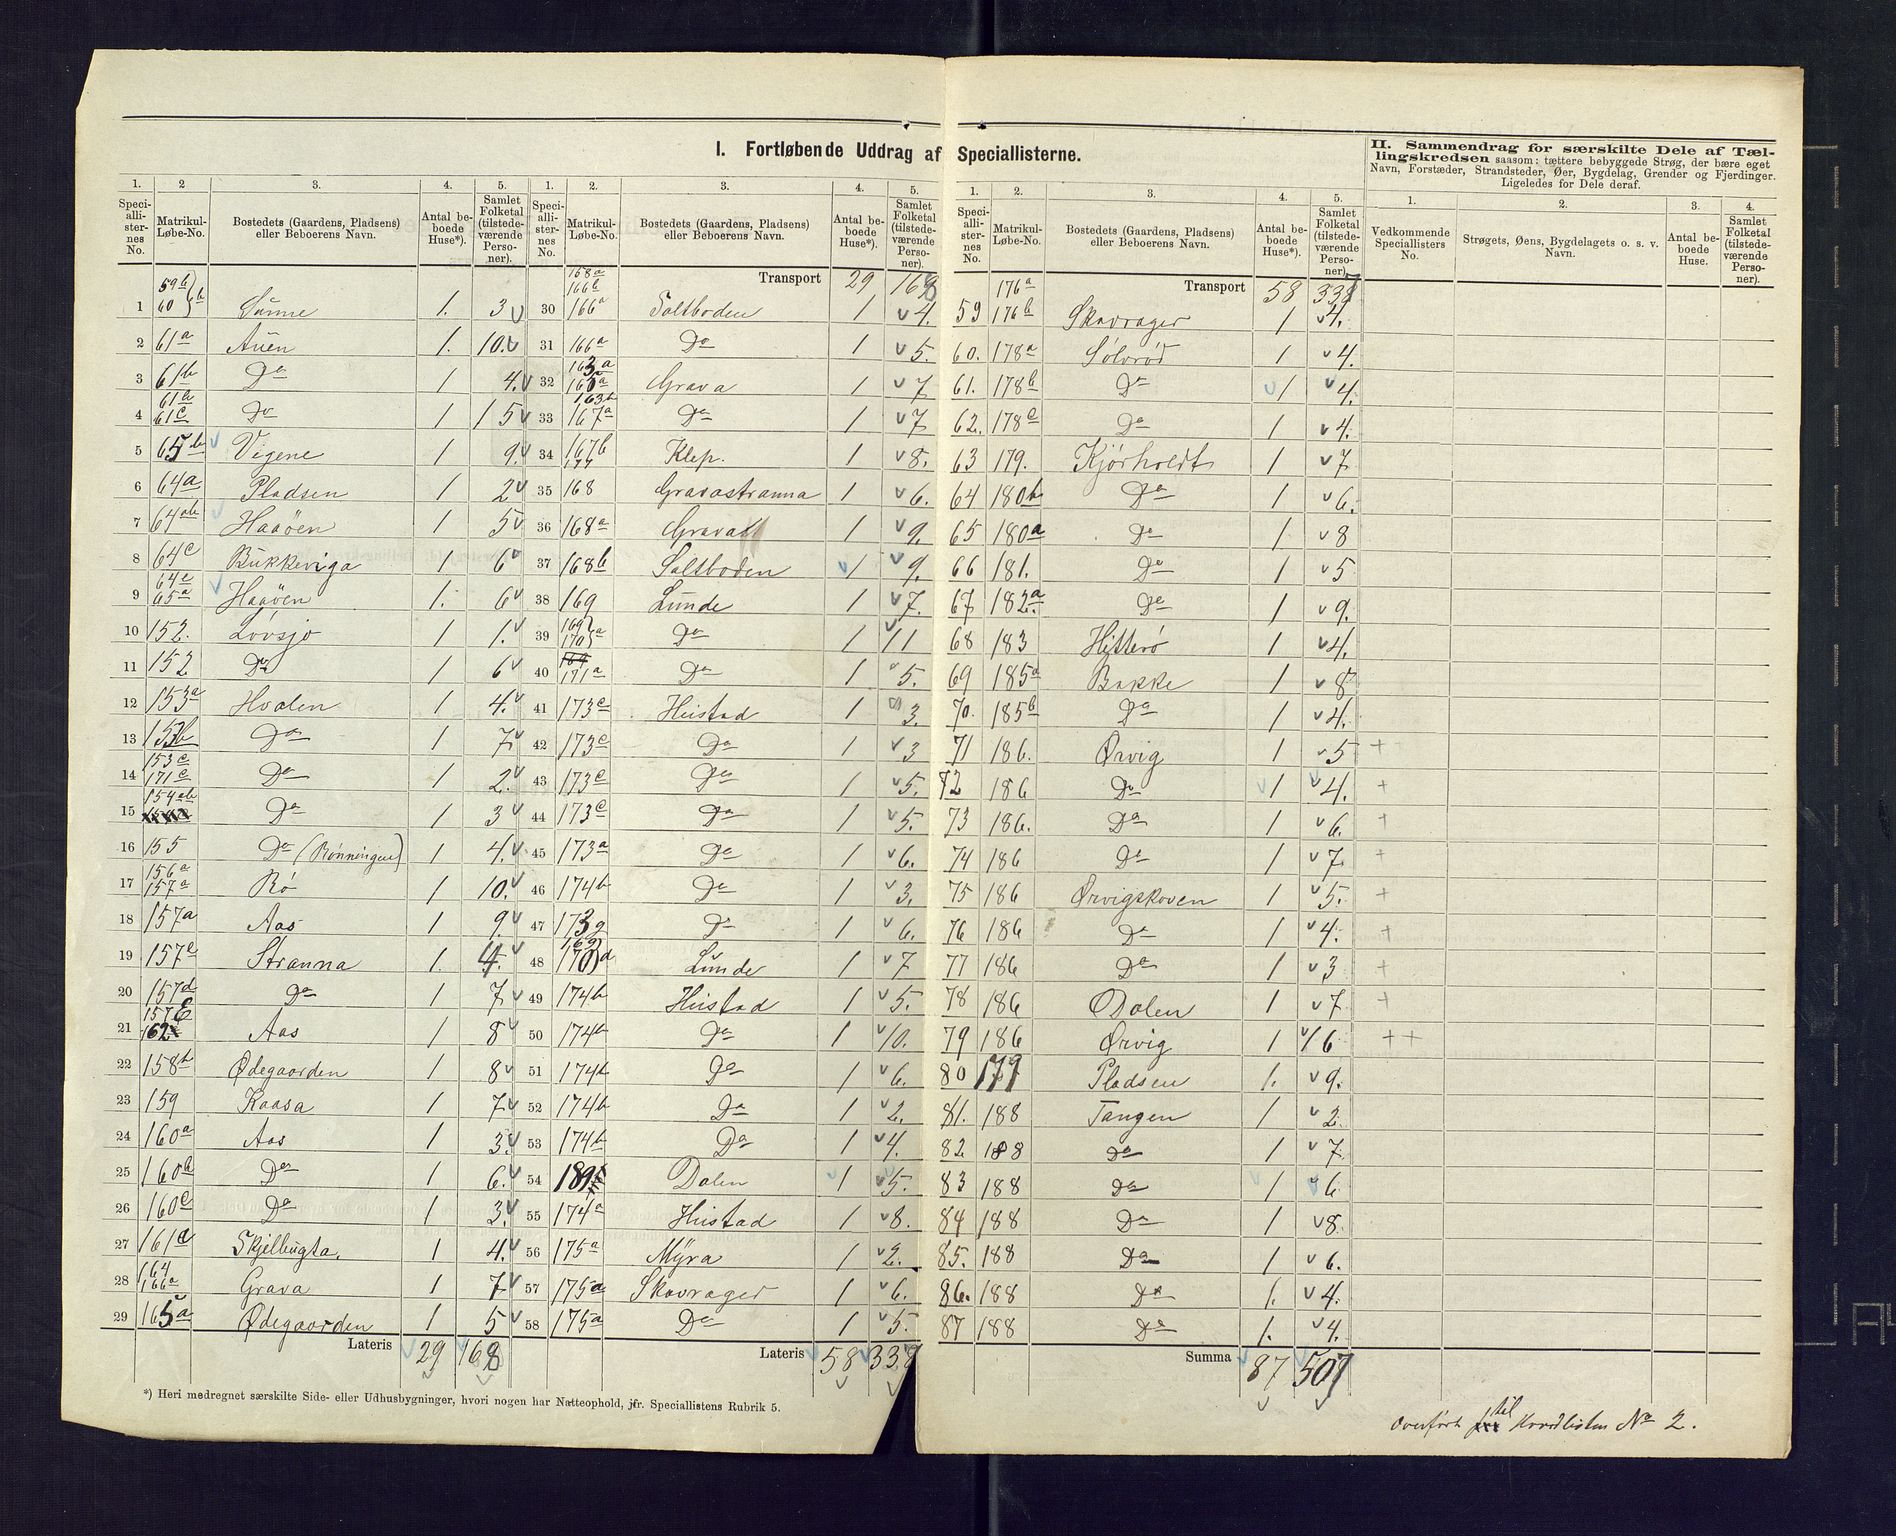 I. Fortløbende Uddrag af Speciallisterne.
II. Sammendrag for særskilte Dele af Tællingskredsen saasom: tættere bebyggede Strøg, der bære eget
Navn, Forstæder, Strandsteder, Øer, Bygdelag, Grender og Fjerdinger.
Ligeledes for Dele deraf.
1. 2 3. 4. 5.
Speciallisternes No. Matrikul-Løbe-No. Bostedets (Gaardens, Pladsens) eller Beboerens Navn. Antal beboede Huse*). Samlet Folketal (tilstedeværende Personer).
1 59b 60 b Sanne 1. 3
2 61a Auen 1. 10.
3 61b Do 1 4.
4 61b 61c Do 1 15
5 65b Vigene 1 9.
6 64a Pladsen 1 2
7 64ab Haaöen 1 5
8 64c Bukkeviga 1 6
9 64c 65a Haaöen 1. 6
10 152. Lövsjö 1 1.
11 152 Do 1 6
12 153a Hvalen 1 4.
13 153b Do 1 7
14 153c 171c Do 1 2.
15 154ab Do 1 3
16 155 Do (Rönningen) 1 4.
17 156a 157a Rö 1 10.
18 157a Aas 1 9.
19 157c Stranna 1. 4.
20 157d Do 1 7
21 157e 162 Aas 1 8
22 158b Ödegaarden 1 8
23 159 Kaasa 1 7
24 160a Aas 1 3.
25 160b Do 1 6.
26 160c Do 1 3.
27 161a Skjelbugta. 1 4.
28 164 166a Grava 1 7
29 165a Ödegaarden 1 5
Lateris 29 168
1. 2. 3. 4. 5.
Speciallisternes No. Matrikul-Løbe-No. Bostedets (Gaardens, Pladsens) eller Beboerens Navn. Antal beboede Huse*). Samlet Folketal (tilstedeværende Personer).
Transport 29 168
30 168a 166b 166a Saltboden 1 4.
31 166a Do 1 5.
32 163a 160a Grava 1 7
33 163b 167a Do 1 7
34 167b 177 Klep. 1 8.
35 168 Gravastranna 1 6.
36 168a Grava 1 9.
37 168b Saltboden 1 9.
38 169 Lunde 1 7.
39 169 170 a Do 1 11
40 171a Do 1 5.
41 173c Hustad 1 3.
42 173c Do 1 3
43 173c Do 1 5.
44 173c Do 1 5.
45 173a Do 1 6.
46 174b Do 1 3.
47 173g Do 1 6.
48 169 170 d Lunde 1 7
49 174b Hustad 1 5.
50 174b Do 1 10.
51 174b Do 1 6.
52 174b Do 1 2.
53 174b Do 1 4.
54 189 Dalen 1 5.
55 174a Hustad 1 8.
56 175a Myra 1 2.
57 175a Skavrager 1 6.
58 175a Do 1 5.
Lateris 58 338
1. 2. 3. 4. 5.
Speciallisternes No. Matrikul-Løbe-No. Bostedets (Gaardens, Pladsens) eller Beboerens Navn. Antal beboede Huse*). Samlet Folketal (tilstedeværende Personer).
Transport 58 338
59 176a 176b Skavrager 1 4.
60. 178a Sölvröd 1 4.
61. 178b Do 1 4.
62. 178c Do 1 4.
63 179. Kjörholdt 1 7
64 180b Do 1 6.
65 180a Do 1. 8
66 181. Do 1 5
67 182a Do 1 9.
68 183 Hitterö 1 4.
69 185a Bakke 1 8
70. 185b Do 1 4.
71 186. Örvig 1 5 +
72 186 Do 1 4. +
73 186. Do 1 6. +
74 186 Do 1 7. +
75 186 Örvigskoven 1 5. +
76 186 Do 1 4. +
77 186 Do 1 3 +
78 186 Dalen 1 7 +
79 186 Örvig 1 6 ++
80 177 Pladsen 1. 9.
81. 188 Tangen 1 2.
82. 188 Do 1 7.
83 188 Do 1 6
84 188 Do 1 8.
85. 188 Do 1 6.
86. 188 Do 1. 4.
87 188 Do 1. 4.
Summa 87 507
1. 2. 3. 4.
Vedkommende Speciallisters No. Strøgets, Øens, Bygdelagets o. s. v. Navn. Antal beboede Huse. Samlet Folketal (tilstedeværende Personer).
*) Heri medregnet særskilte Side- eller Udhusbygninger, hvori nogen har Natteophold, jfr. Speciallistens Rubrik 5.
Overført til Hovedlisten No 2.